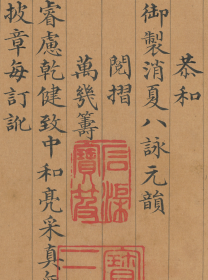 恭和
御製消夏八詠元韻
閱摺
萬幾籌
睿慮乾健致中和亮采真
披章每訂訛